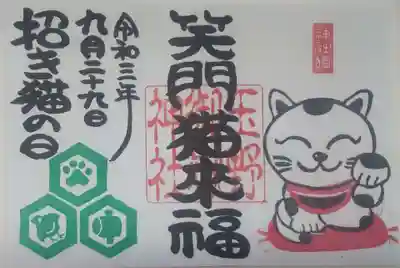 笑門猫来福
玉野
神社
令和三年
九月二十九日
招き猫の日